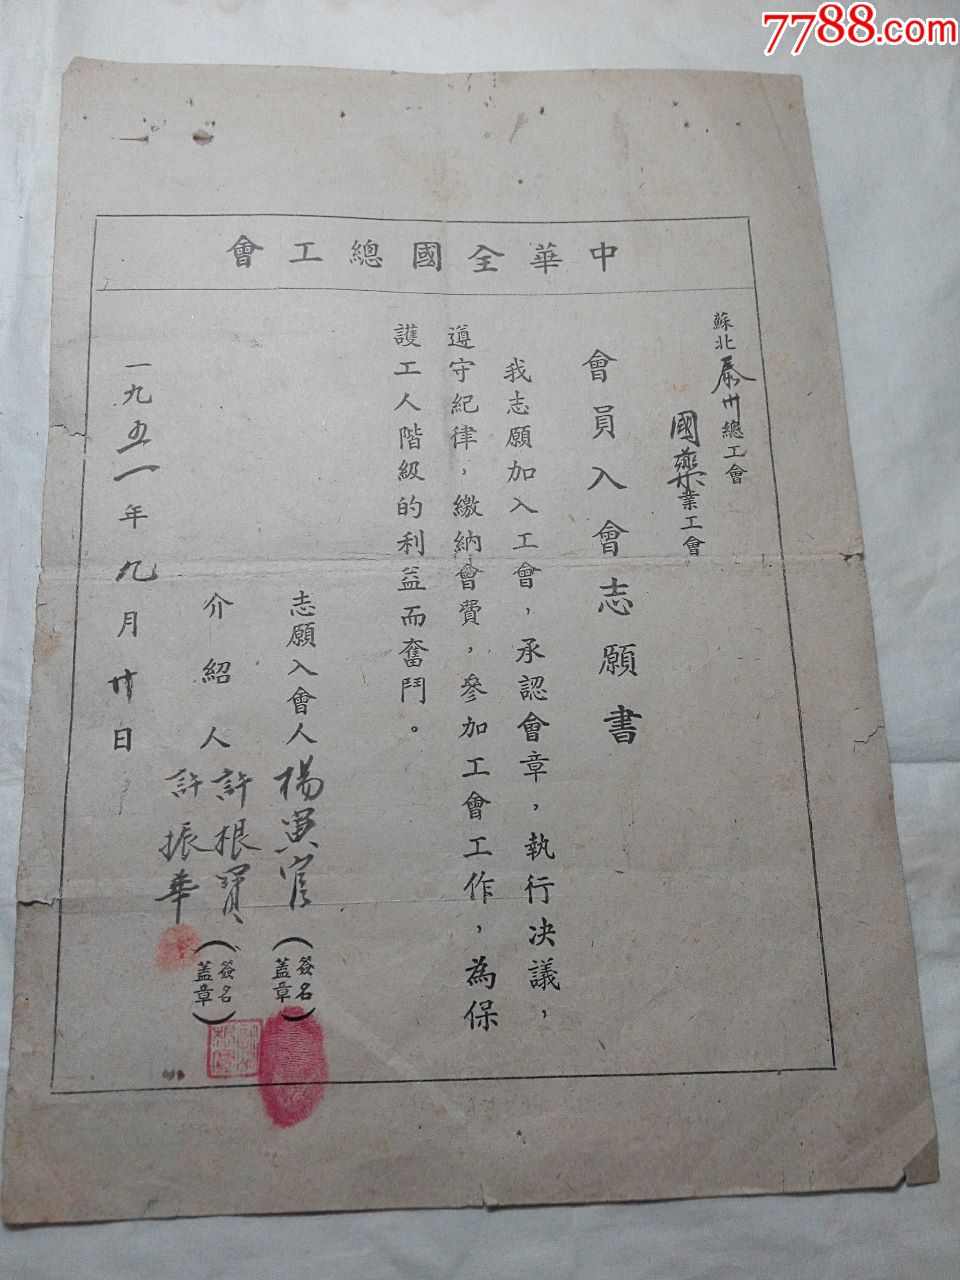 7788.com
中華全國總工會
蘇北泰州總工會
國藥業工會
會員入會志願書
我志願加入工會，承認會章，執行決議，
遵守紀律，繳納會費，參加工會工作，為保
護工人階級的利益而奮鬥。
志願入會人 楊寅官（簽名蓋章）
介紹人 許根寶（簽名蓋章）
許振華
一九五一年九月廿日